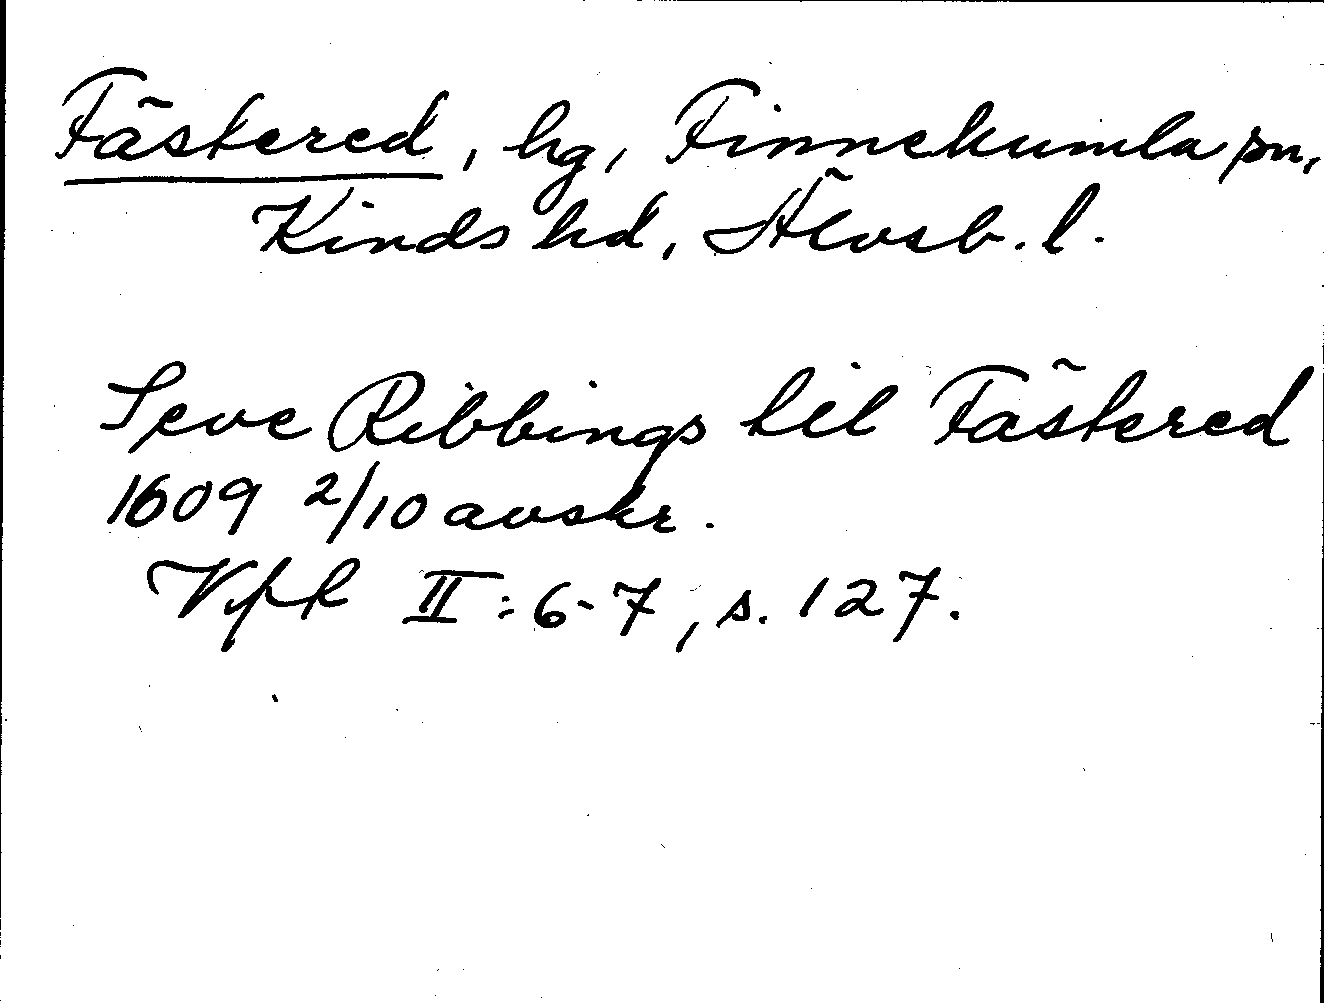 Fästered, hg, Finnekumla sn,
Kinds hd, Älvsb. l.
Seve Ribbings till Fästered
1609 2/10 avskr.
VfR II: 6-7, s. 127.